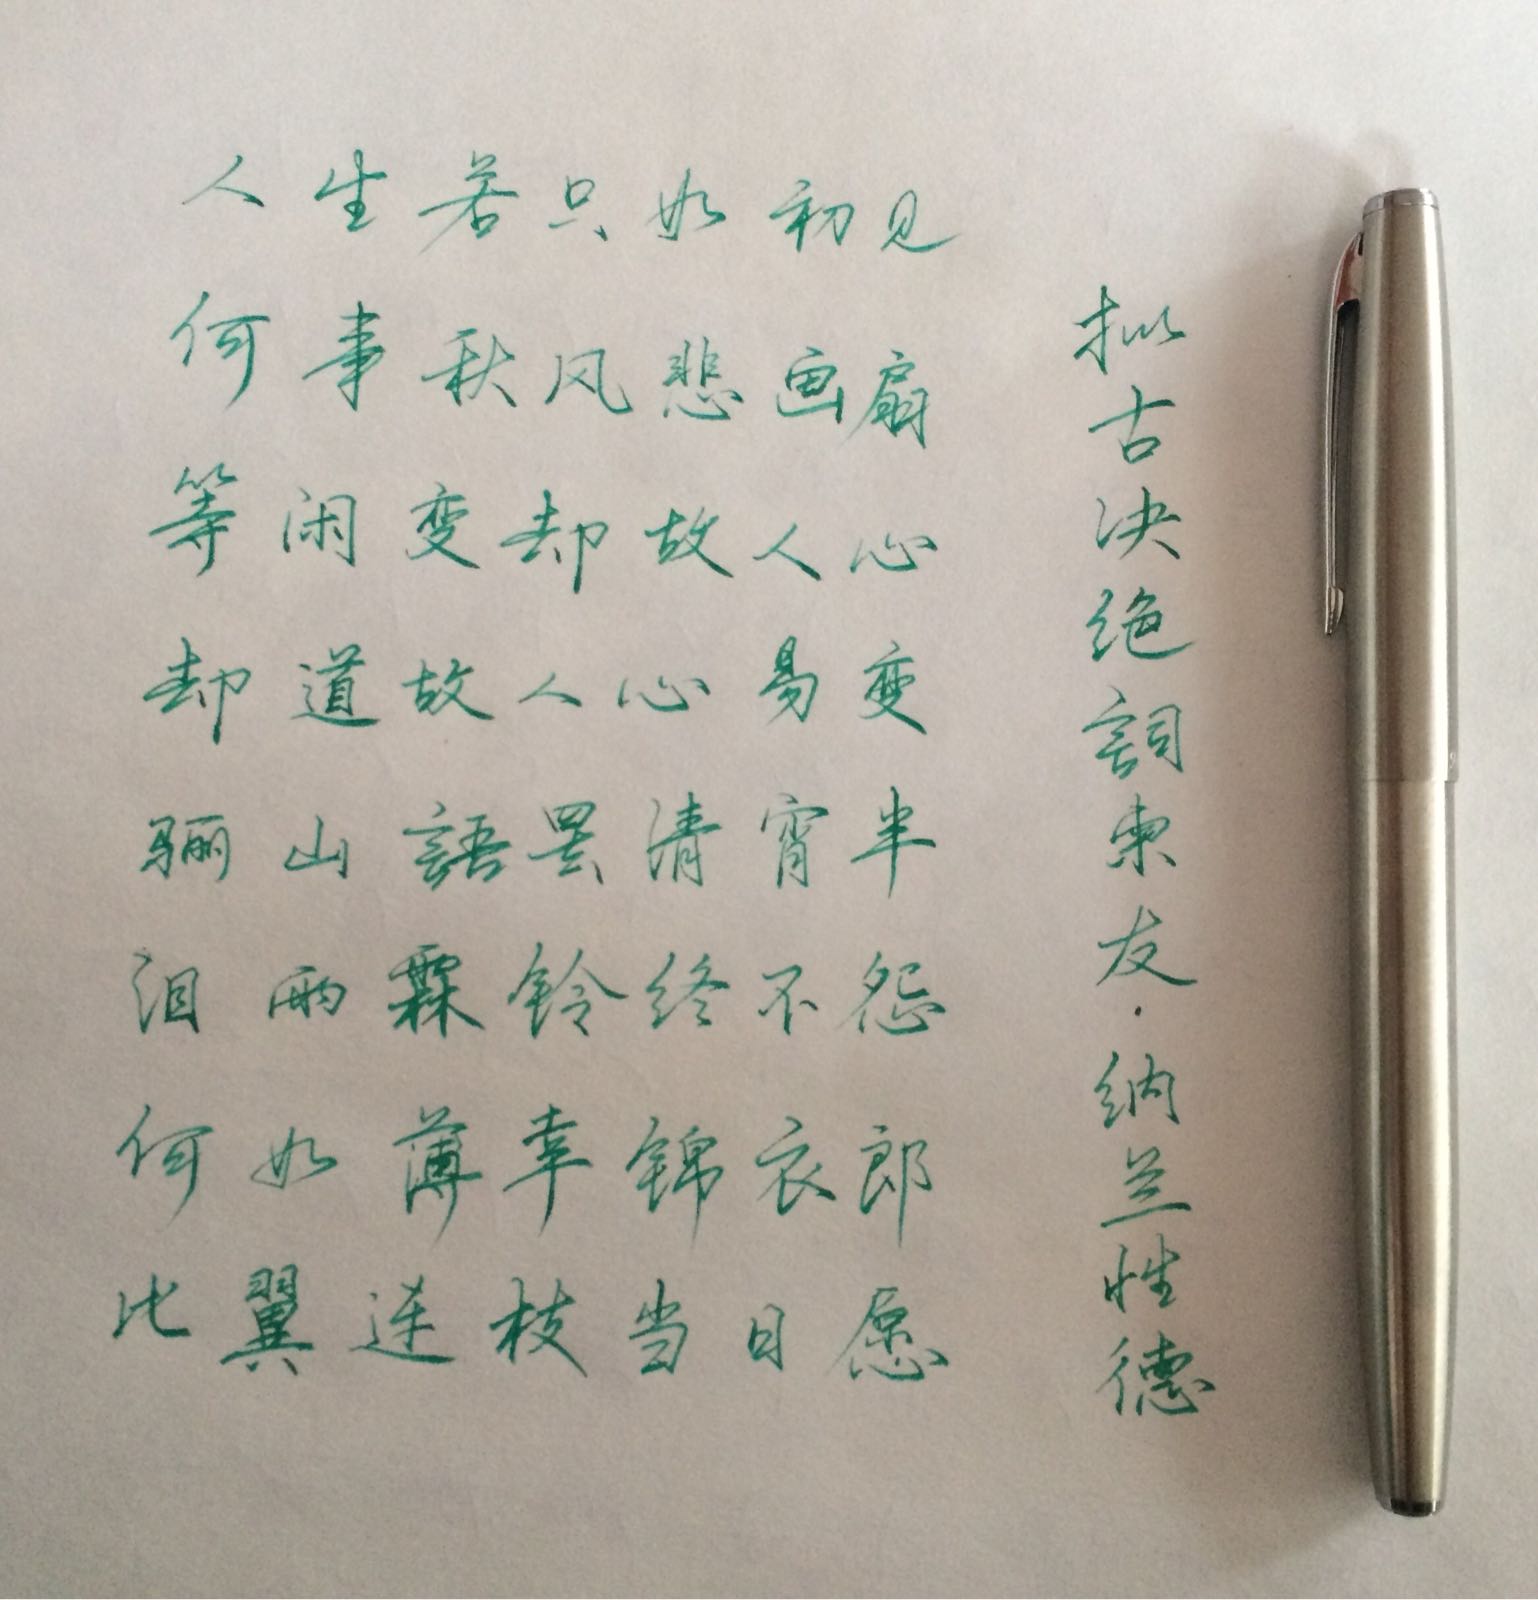 人生若只如初见
何事秋风悲画扇
等闲变却故人心
却道故人心易变
骊山語罢清宵半
泪雨霖铃终不怨
何如薄幸锦衣郎
比翼连枝当日愿
拟古决绝詞柬友·纳兰性德